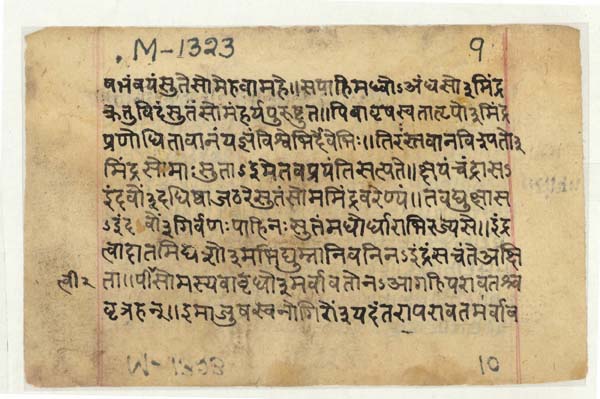 . M-1323 9
षभंवयंसुतेसोमेहवामहे॥सपाहिमध्वोऽअंधसो३मिंद्र
क्रतुविदंसुतंसोमंहर्यपुरुष्टुत॥पिबावृषस्वतातृपो३मिंद्र
प्रणोधितावानंयज्ञंविश्वेभिर्देवेभिः॥तिरस्तवानविश्पतो३
मिंद्रसोमाःसुताऽइमेतवप्रयंतिसत्पते॥क्षयंचंद्रासऽ
इंदवो३ंदधिष्वाजठरेसुतंसोममिंद्रवरेण्यं॥तवद्युक्षास
ऽइंदवो३ंगिर्वणःपाहिनःसुतंमधोर्धाराभिरज्यसे॥इंद्र
त्वादातमिद्यशो३मभिद्युम्नानिवनिनऽइंद्रंसचंतेअक्षि
त्वी२ ता॥पीसोमस्यवावृधो३मर्वावतोनऽआगहिपरावतश्च
वृत्रहन्॥इमाजुषस्वनोगिरो३यदंतरापरावतमर्वाव
10